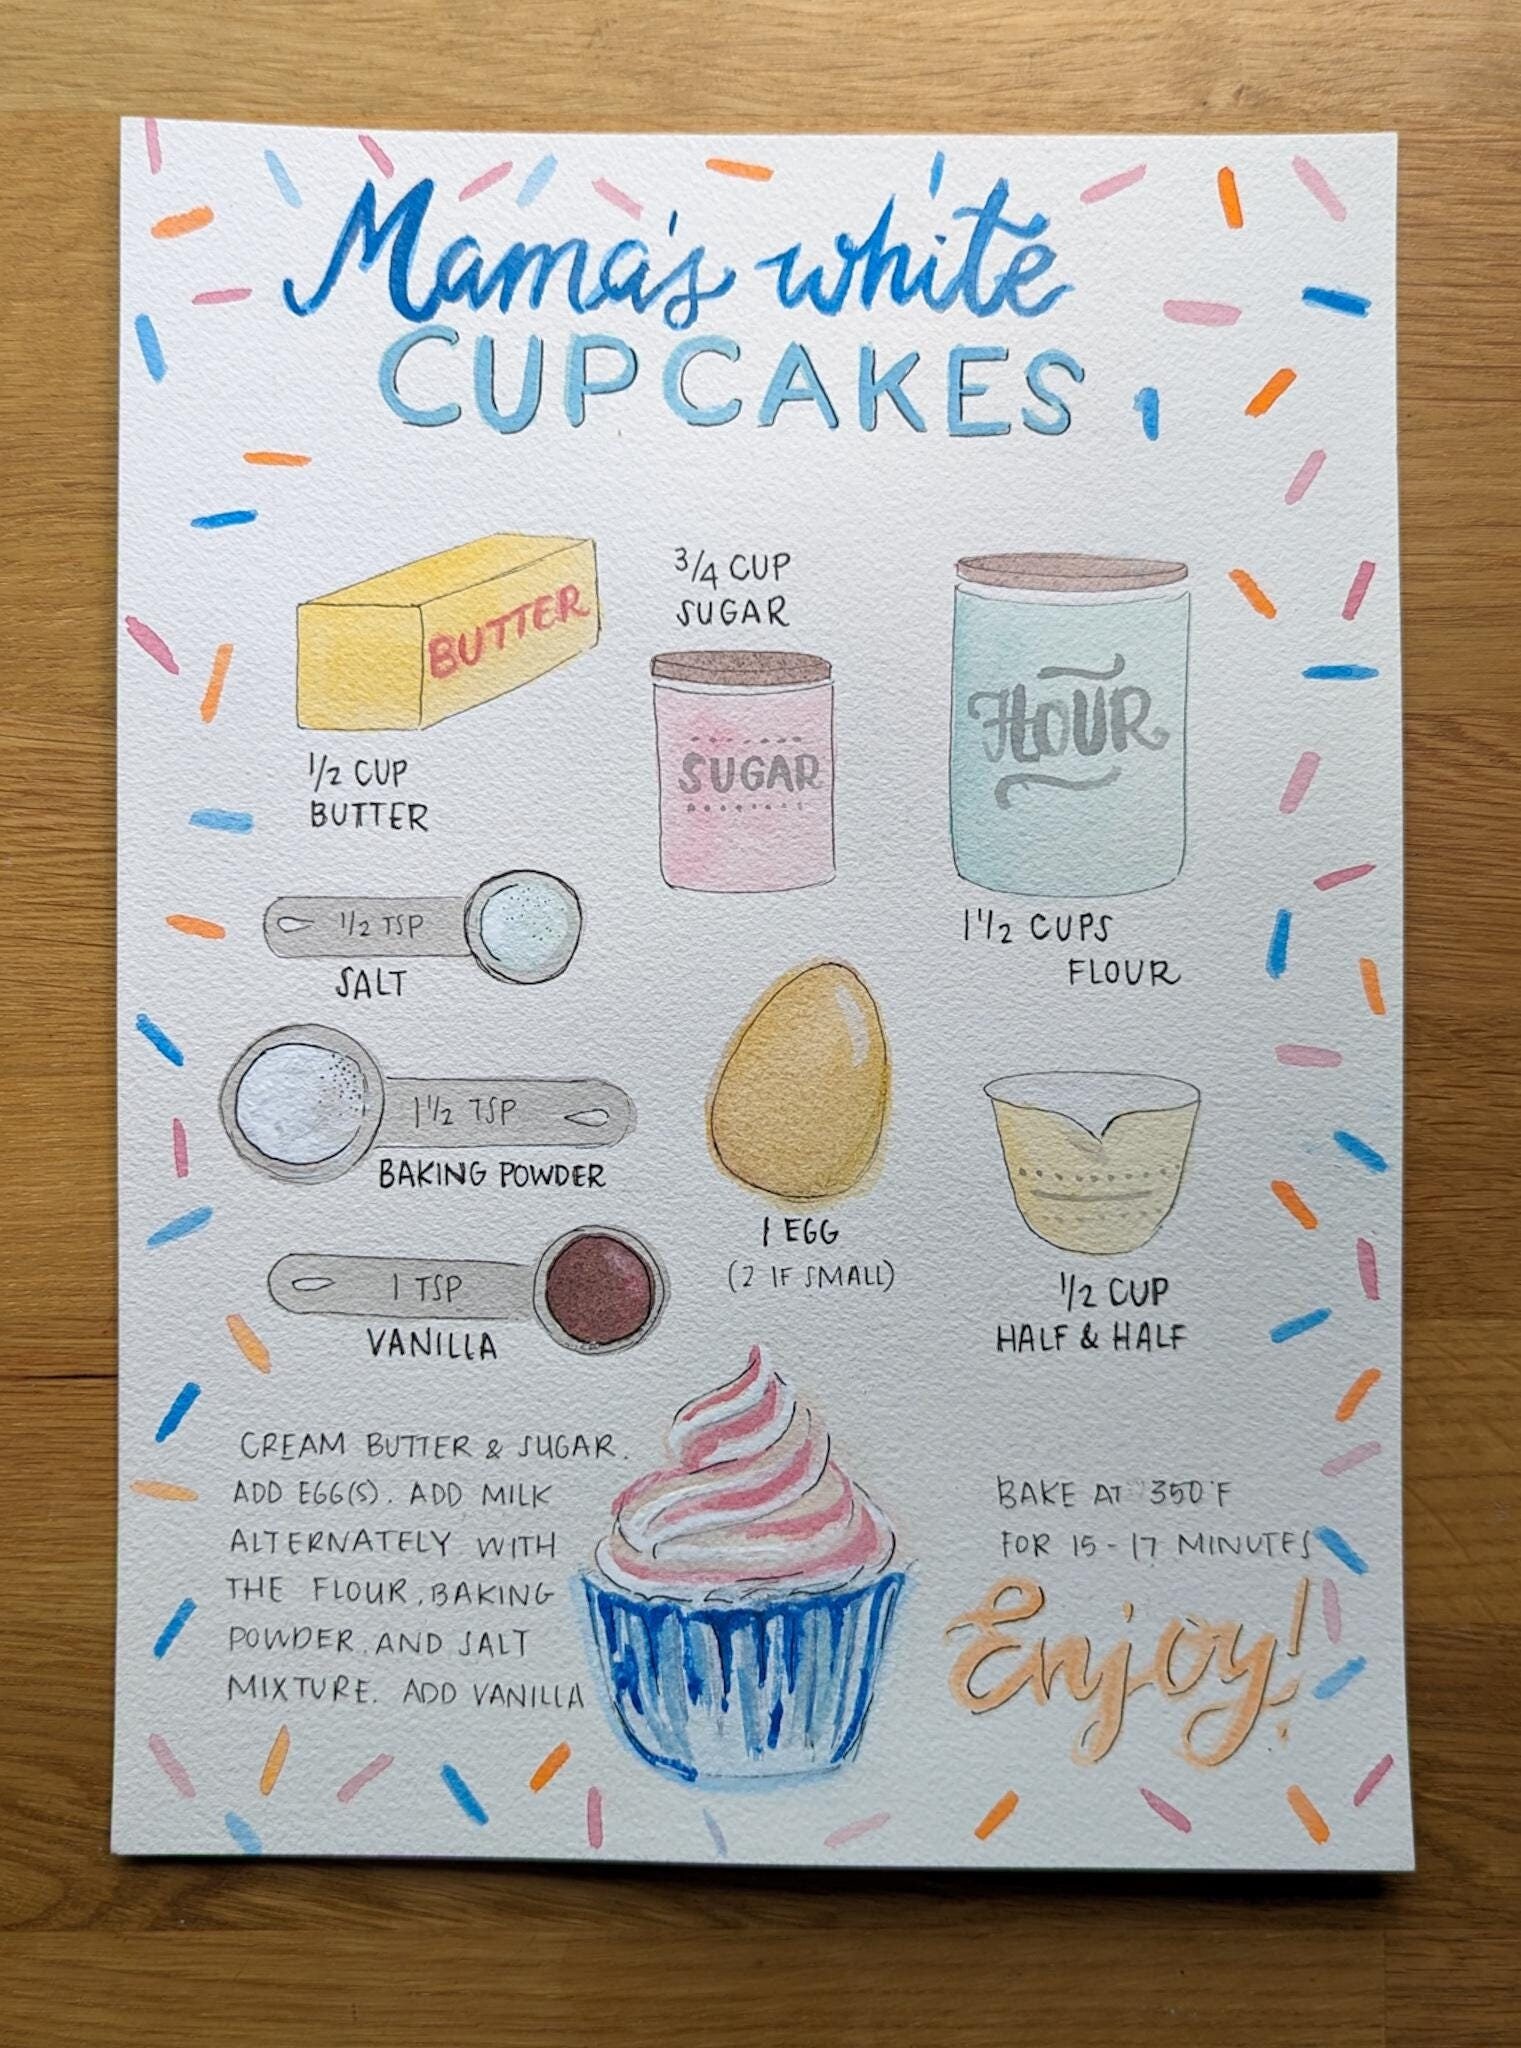 Mama's white
CUPCAKES
BUTTER
1/2 CUP
BUTTER
3/4 CUP
SUGAR
SUGAR
FLOUR
1 1/2 CUPS
FLOUR
1/2 TSP
SALT
1 1/2 TSP
BAKING POWDER
1 TSP
VANILLA
1 EGG
(2 IF SMALL)
1/2 CUP
HALF & HALF
CREAM BUTTER & SUGAR.
ADD EGG(S). ADD MILK
ALTERNATELY WITH
THE FLOUR, BAKING
POWDER, AND SALT
MIXTURE. ADD VANILLA
BAKE AT 350°F
FOR 15-17 MINUTES
Enjoy!